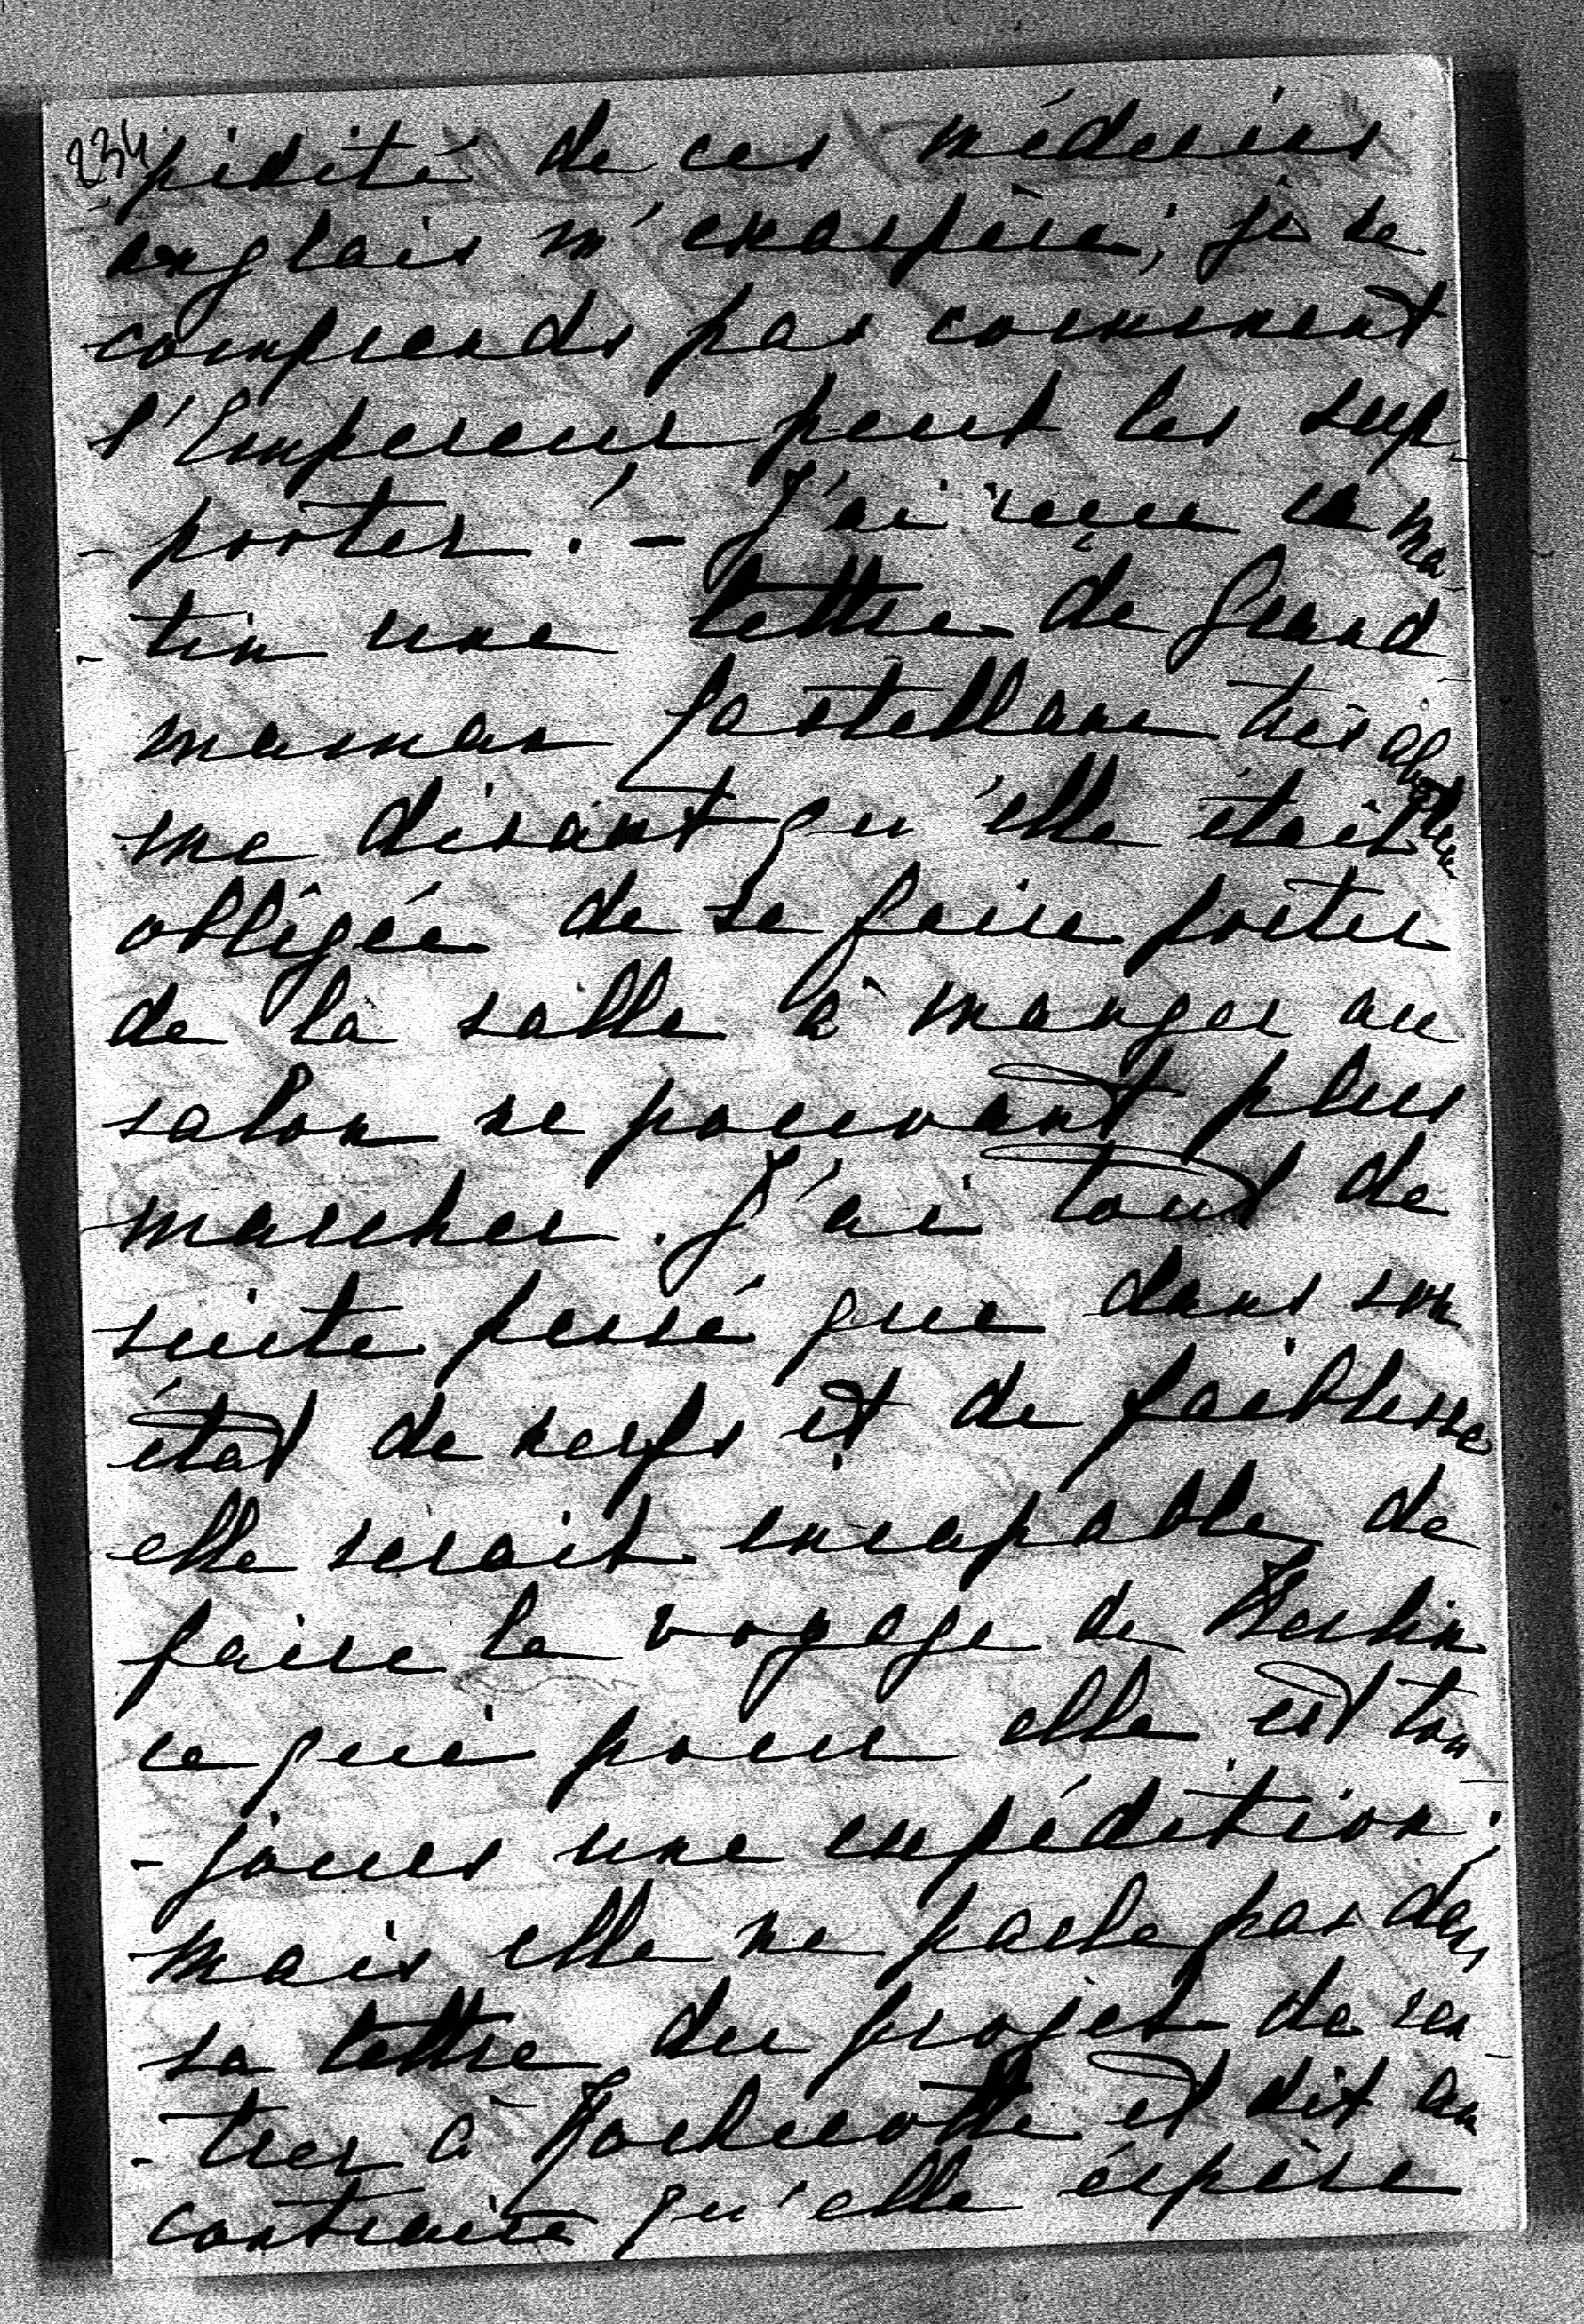 234
- pidité de ces médecins
anglais m'exaspère; je ne
comprends pas comment
l'Empereur peut les sup-
- porter! - J'ai reçu ce ma-
- tin une lettre de Grand
maman Castellane très
me disant qu'elle était
obligée de se faire porter
de la salle à manger au
salon ne pouvant plus
marcher. J'ai tout de
suite pensé que dans son
état de nerfs et de faiblesse
elle serait incapable de
faire le voyage de Berlin
ce qui pour elle est tou-
- jours une expédition;
mais elle ne parle pas dans
sa lettre du projet de ren-
- trer à Rochecotte et dit au
contraire qu'elle éspère